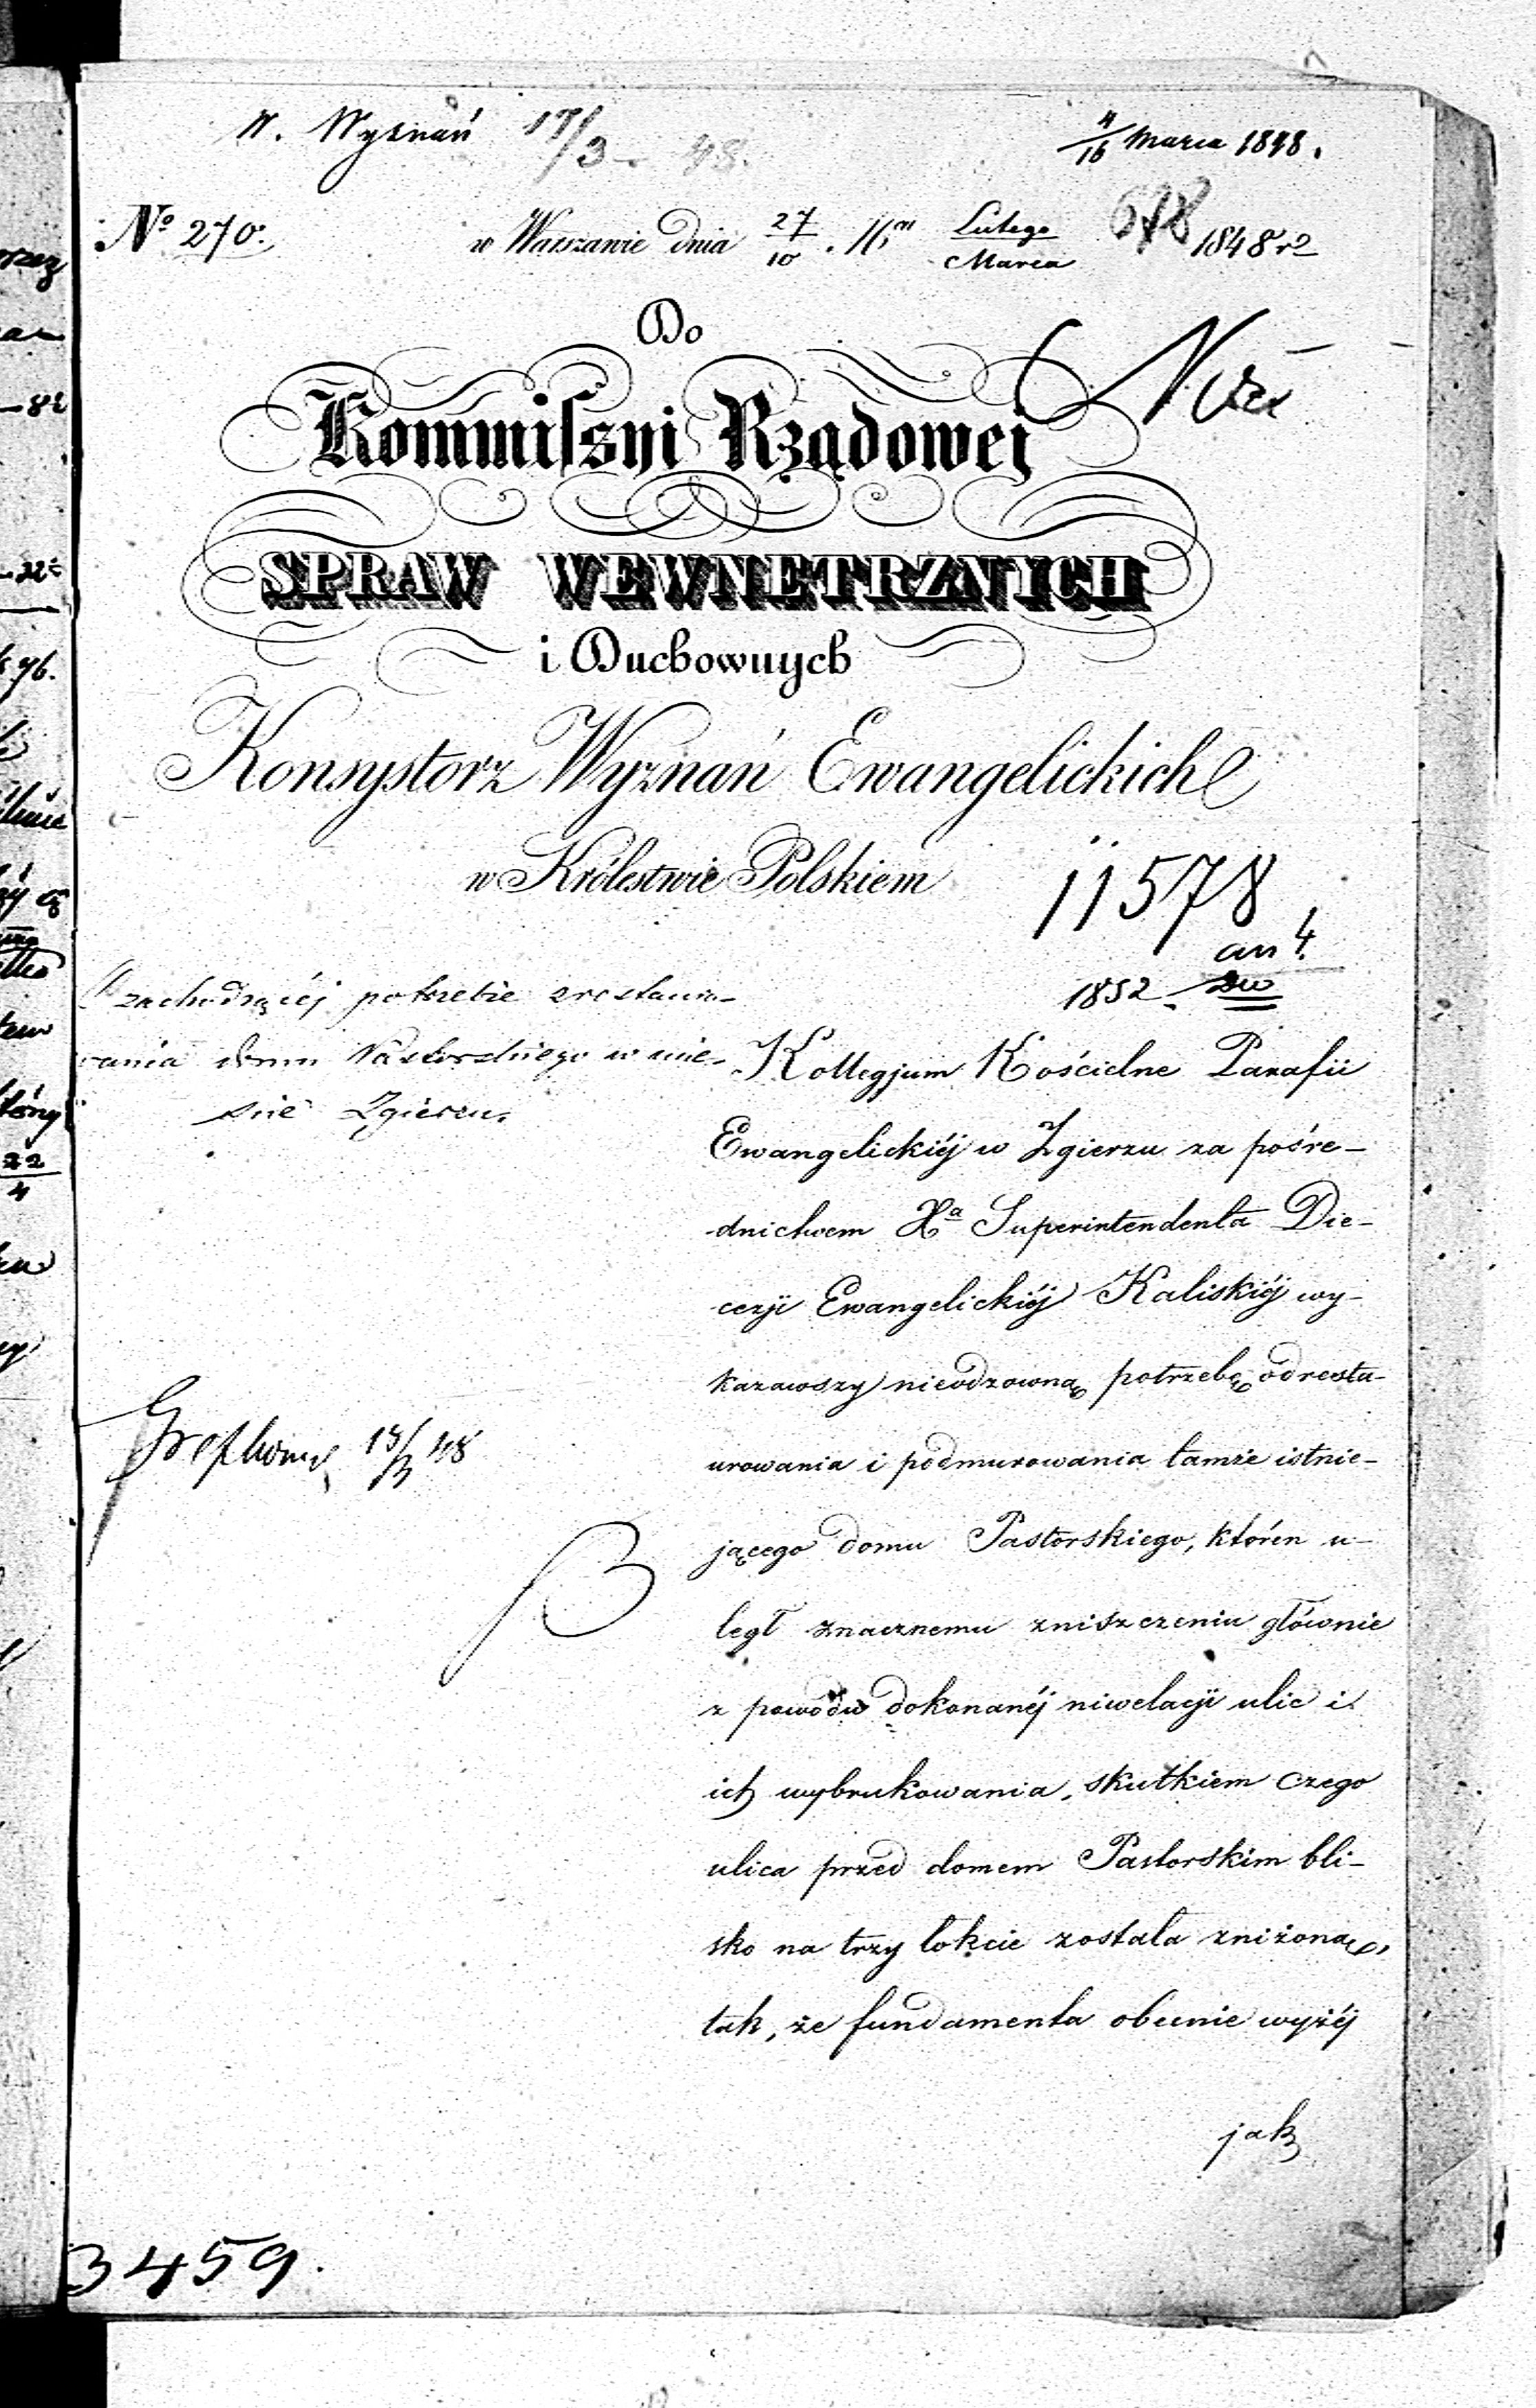 W. Wyznań 17/3 - 48.
4/16 Marca 1848.
678
No 270.
w Warszawie dnia 27/10 . Mca Lutego/Marca 1848 ro
Do
Kommissyi Rządowej
SPRAW WEWNETRZNYCH
i Duchownych
Konsystorz Wyznań Ewangelickich
w Królestwie Polskiem
11578
an 4.
1852
O zachodzącéj potrzebie zrestauro-
wania domu Pastorskiego w mie-
scie Zgierzu.
Kollegjum Kościelne Parafii
Ewangelickiéj w Zgierzu za pośre-
dnictwem Xa Superintendenta Die-
cezji Ewangelickiéj Kaliskiéj wy-
kazawszy nieodzowną potrzebę odresta-
urowania i podmurowania tamże istnie-
jącego domu Pastorskiego, któren u-
legł znacznemu zniszczeniu głównie
z powodu dokonanéj niwelacji ulic i
ich wybrukowania, skutkiem czego
ulica przed domem Pastorskim bli-
sko na trzy łokcie została zniżona,
tak, że fundamenta obecnie wyżéj
jak
13/3 48
3459.